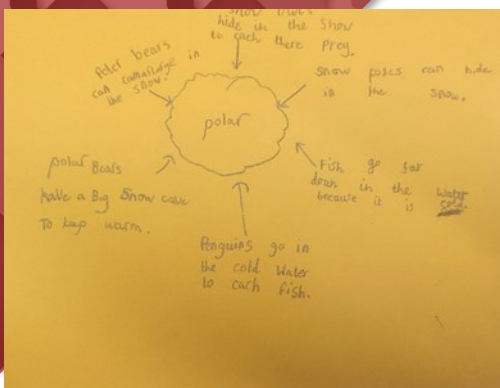 hide in the snow
to cach there prey.
Poler bears
can camaflarge in
the snow.
snow foxes can hide
in the snow.
polar
polar Bears
have a Big Snow cave
To keep warm.
Fish go far
down in the water
because it is cold.
Penguins go in
the cold Water
to cach fish.